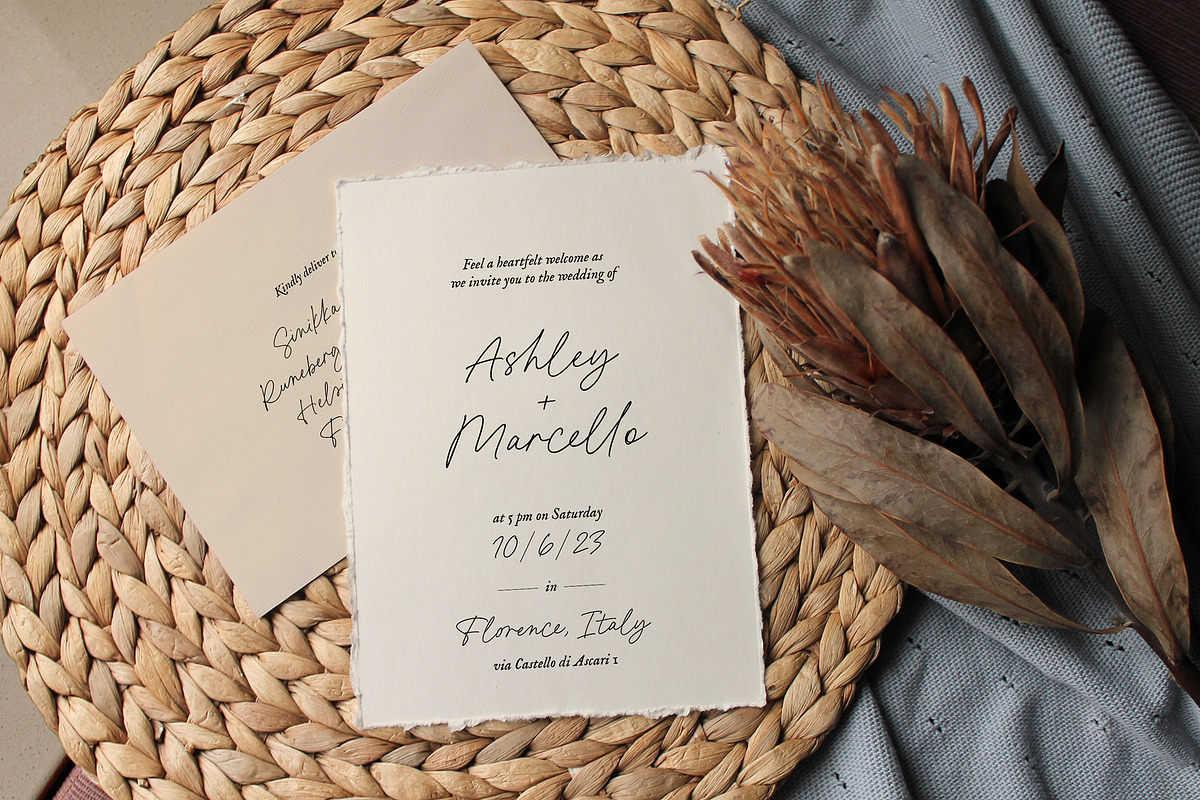 Kindly deliver
Sinikka
Runeberg
Feel a heartfelt welcome as
we invite you to the wedding of
Ashley
+
Marcello
at 5 pm on Saturday
10/6/23
in
Florence, Italy
via Castello di Ascari 1